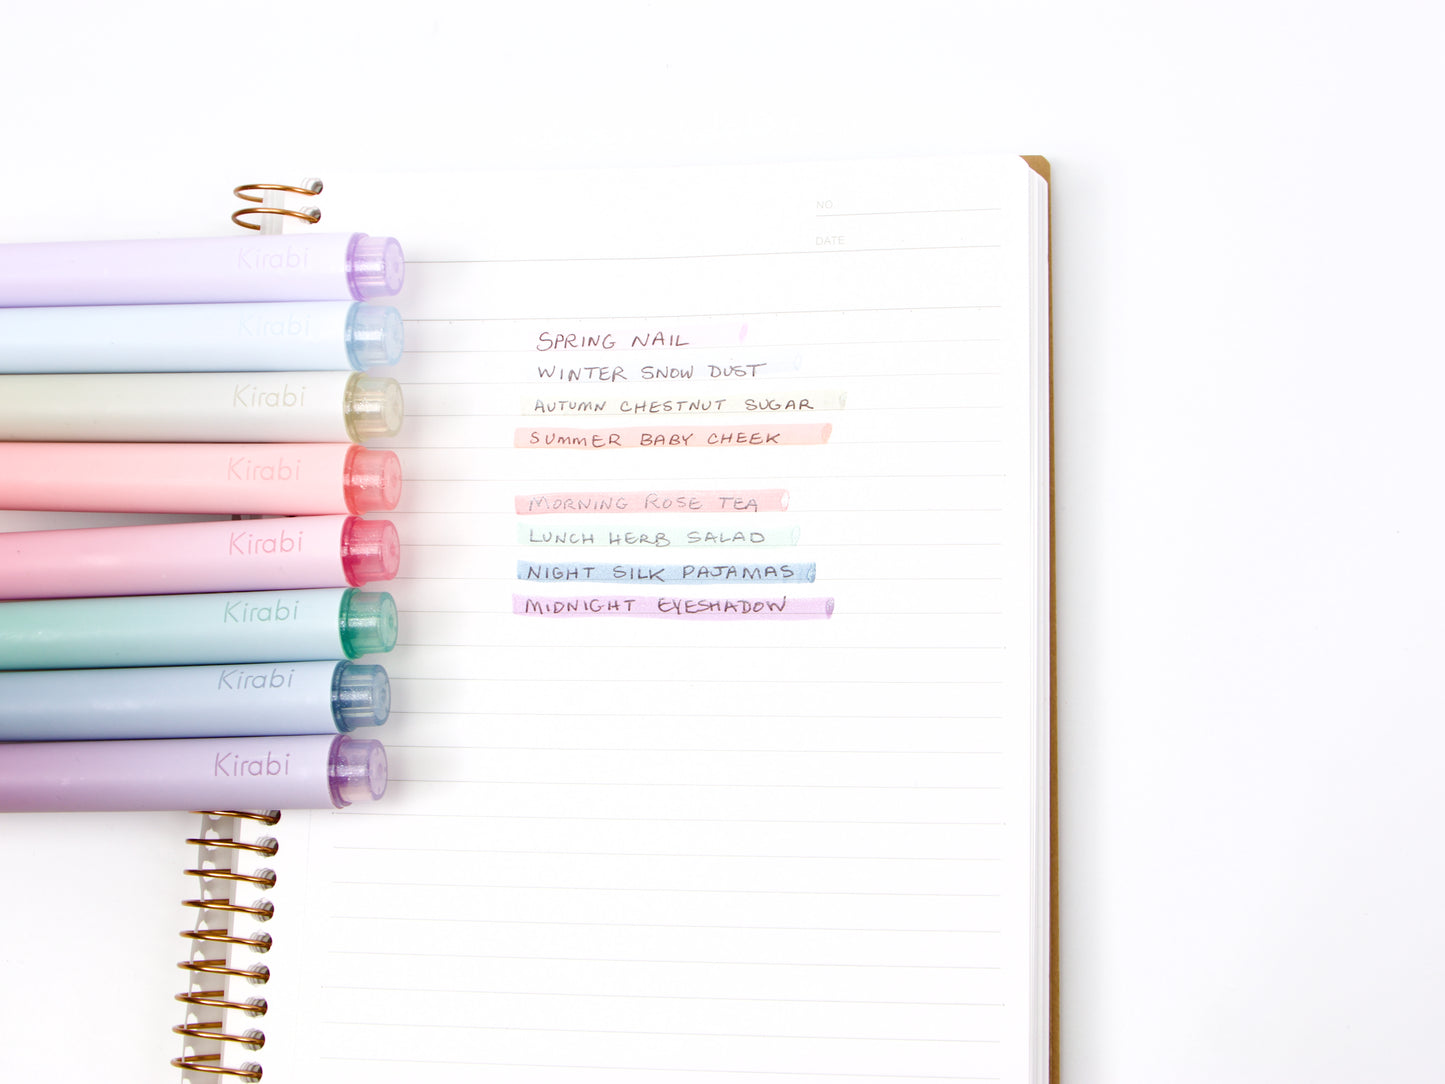 NO.
DATE
Kirabi
Kirabi
Kirabi
Kirabi
Kirabi
Kirabi
Kirabi
Kirabi
SPRING NAIL
WINTER SNOW DUST
AUTUMN CHESTNUT SUGAR
SUMMER BABY CHEEK
MORNING ROSE TEA
LUNCH HERB SALAD
NIGHT SILK PAJAMAS
MIDNIGHT EYESHADOW